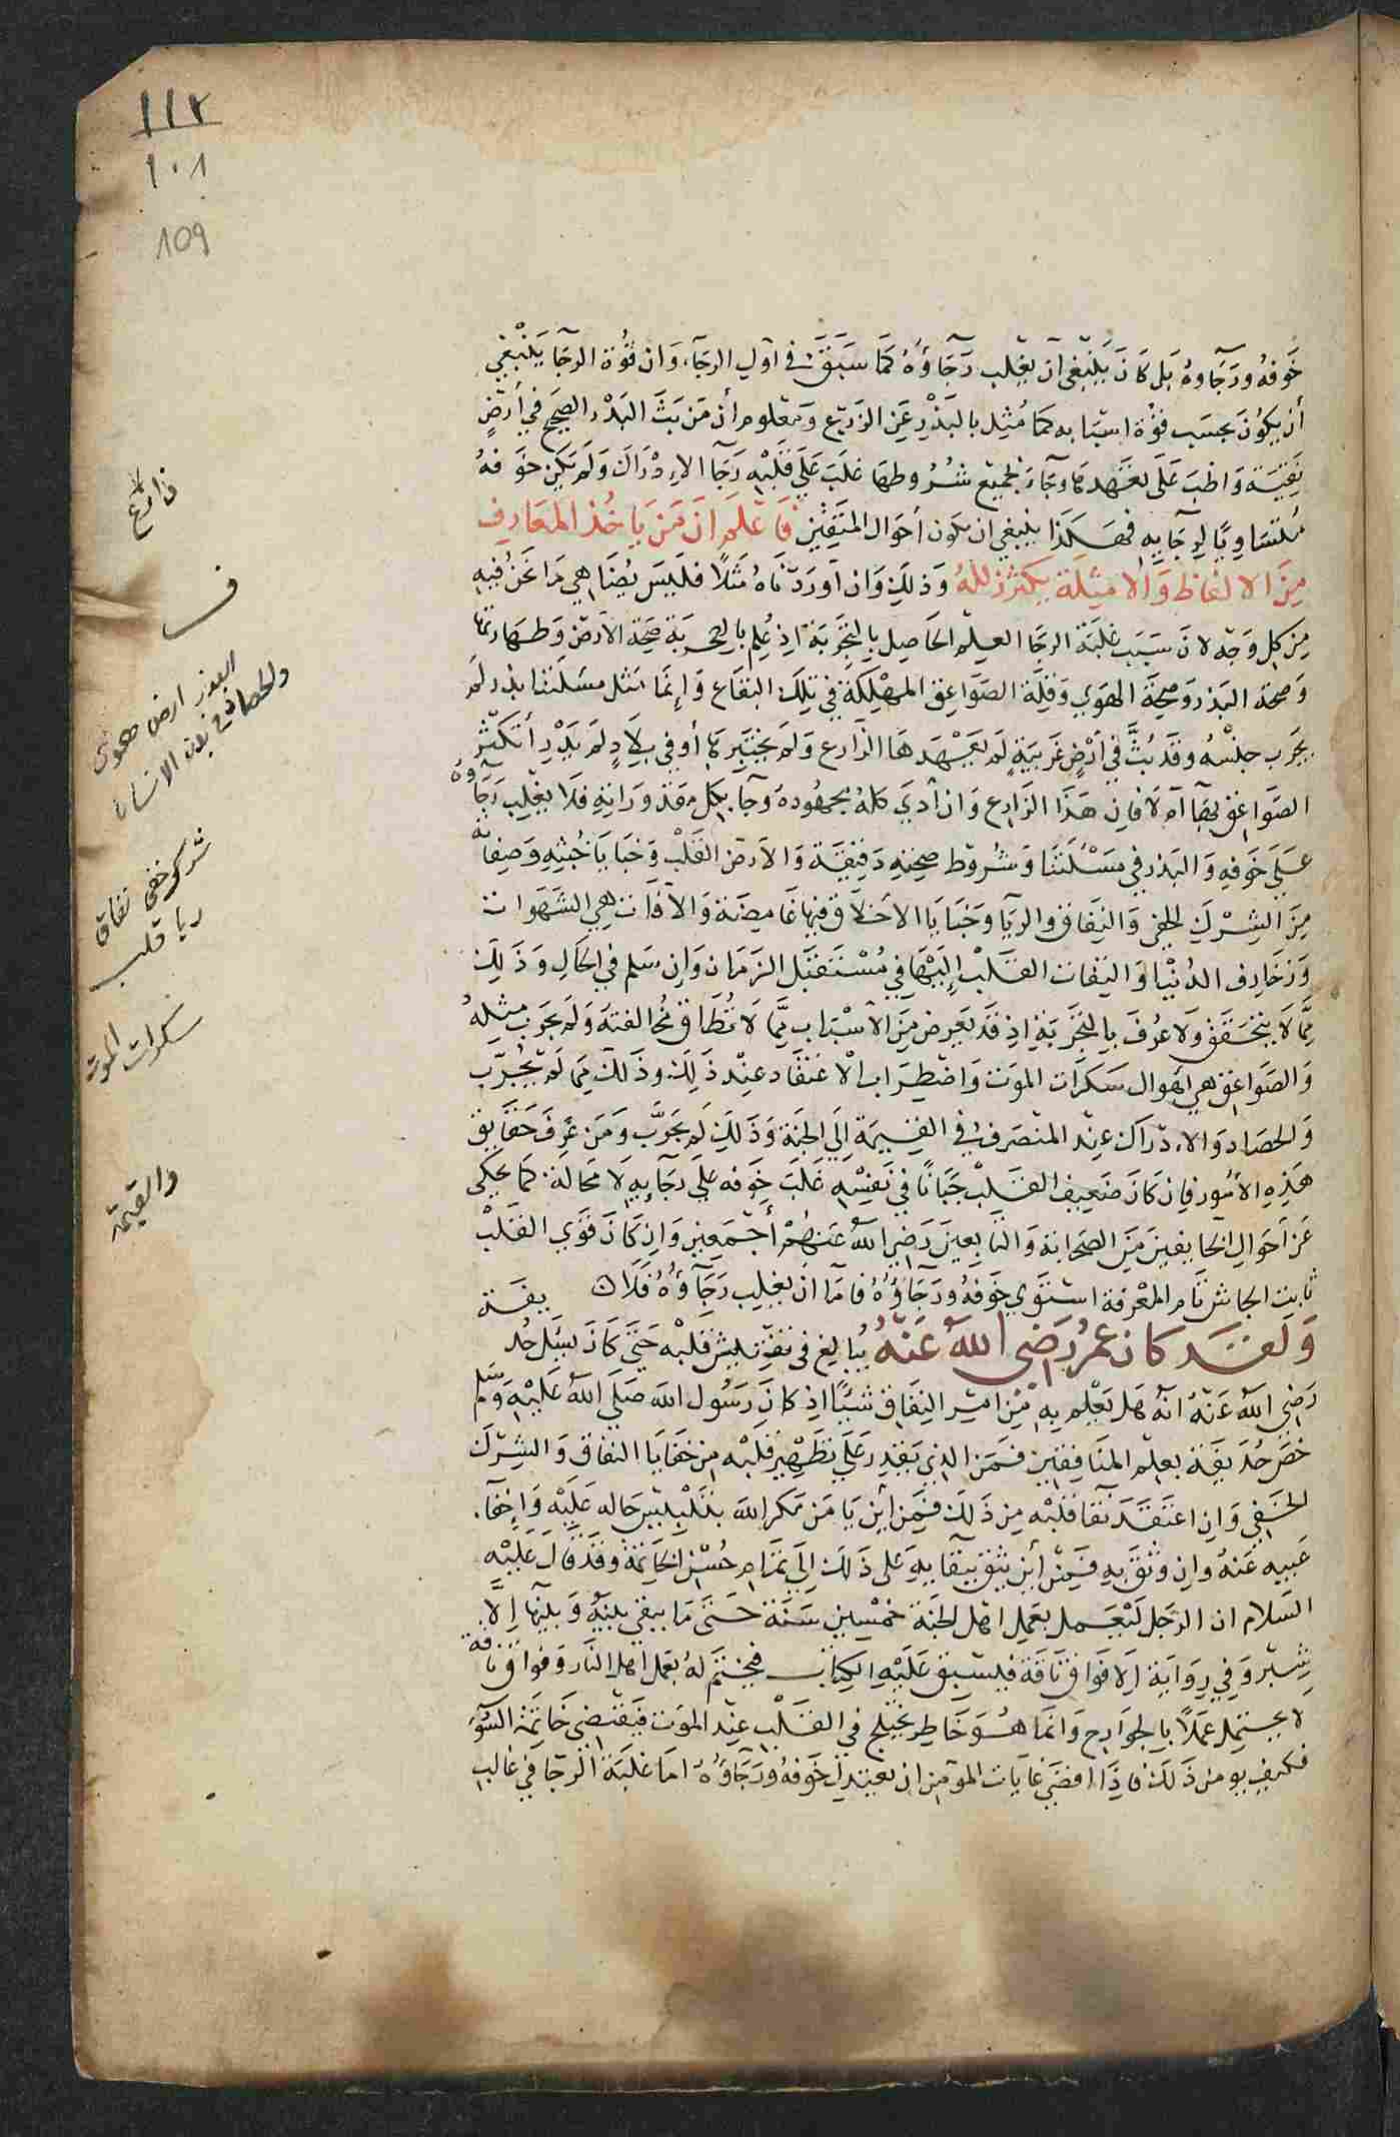 ١١٢
١٠٨
109
خوفه ورجاوه بل كان ينبغي ان يغلب رجاؤه كما سبق في اول الرجاء وان قوة الرجا ينبغي
أن يكون بحسب قوة اسبابه كما مثل بالبذر عن الزرع ومعلوم أن من بث البذر الصحيح في أرض
نقية واظب على تعهدها وجاء بجميع شروطها غلب على قلبه رجا الإدراك ولم يكن خوفه
متساويا لرجايه فهكذا ينبغي ان يكون أحوال المتقين فاعلم ان من ياخذ المعارف
من الالفاظ والامثلة يكثر زلله وذلك وان اوردناه مثلا فليس يضاهي ما نحن فيه
من كل وجه لان سبب غلبة الرجا العلم الحاصل بالتجربة اذ علم بالتجربة صحة الارض وطهارتها
وصحة البذر وصحة الهوي وقلة الصواعق المهلكة في تلك البقاع وإنما مثل مسئلتنا بذر لم
يجرب جنسه وقد بث في أرض غريبة لم يعهدها الزارع ولم يختبرها أو في بلاد لم يدر أتكثر
الصواعق بها ام لا فان هذا الزارع وان أدي كله مجهوده وجا بكل مقدوراته فلا يغلب رجاؤه
على خوفه والبذر في مسئلتنا وشروط صحته دقيقة والارض القلب وخبايا خبثه وصفاته
من الشرك الخفي والنفاق والريا وخبايا الاخلاق فيها غامضة والآفات هي الشهوات
وزخارف الدنيا والتفات القلب إليها في مستقبل الزمان وإن سلم في الحال وذلك
مما لا يتحقق ولا عرف بالتجربة اذ قد يعرض من الاسباب مما لا تطاق مخالفته ولم يجرب مثله
والصواعق هي أهوال سكرات الموت واضطراب الاعتقاد عند ذلك وذلك مما لم يجرب
والحصاد والادراك عند المنصرف في القيمة إلي الجنة وذلك لم يجرب ومن عرف حقايق
هذه الأمور فان كان ضعيف القلب جبانا في نفسه غلب خوفه على رجايه لا محالة كما يحكى
عن أحوال الخايفين من الصحابة والتابعين رضى الله عنهم أجمعين وان كان قوي القلب
ثابت الجاش تام المعرفة استوي خوفه ورجاؤه فاما ان يغلب رجاؤه فلا
ولقد كان عمر رضى الله عنه يبالغ في تفتيش قلبه حتى كان يسئل حذيفة
رضى الله عنه انه هل يعلم به من اثر النفاق شيئا اذ كان رسول الله صلى الله عليه وسلم
خص حذيفة بعلم المنافقين فمن الذي يقدر على تطهير قلبه من خفايا النفاق والشرك
الخفي وان اعتقد نقا قلبه من ذلك فمن اين يامن مكر الله بتلبيس حاله عليه واخفاء
عيبه عنه وان وثق به فمن أين يثق ببقايه على ذلك إلى تمام حسن الخاتمة وقد قال عليه
السلام ان الرجل ليعمل بعمل اهل الجنة خمسين سنة حتى ما يبقي بينه وبينها إلا
شبر وفي رواية إلا فواق ناقة فيسبق عليه الكتاب فيختم له بعمل اهل النار وفواق ناقة
لا يحتمل عملا بالجوارح وانما هو خاطر يختلج في القلب عند الموت فيقتضي خاتمة السوء
فكيف يومن ذلك فاذا اقصي غايات المؤمن ان يعتدل خوفه ورجاؤه اما غلبة الرجا في غالب
ف
البذر ارض هموى
والحصاد
شرك خفى نفاق
ريا قلب
سكرات الموت
والقيمة